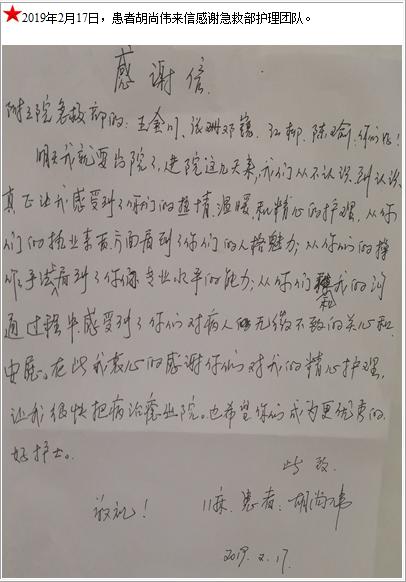 ★2019年2月17日，患者胡尚伟来信感谢急救部护理团队。
感谢信
附三院急救部的：王金川、张珊、邓巍、江柳、陈瑜，你们好！
明天我就要出院了，进院这几天来，我们从不认识到认识，
真正让我感受到了你们的热情、温暖和精心的护理，从你
们的执业素养方面看到了你们的人格魅力；从你们的操
作手法看到了你们专业水平的能力；从你们和我的沟
通过程中感受到了你们对病人的无微不致的关心和
安慰。在此我衷心的感谢你们对我的精心护理，
让我很快把病治愈出院。也希望你们成为更优秀的
好护士。
此致
敬礼！
11床 患者：胡尚伟
2019.2.17.